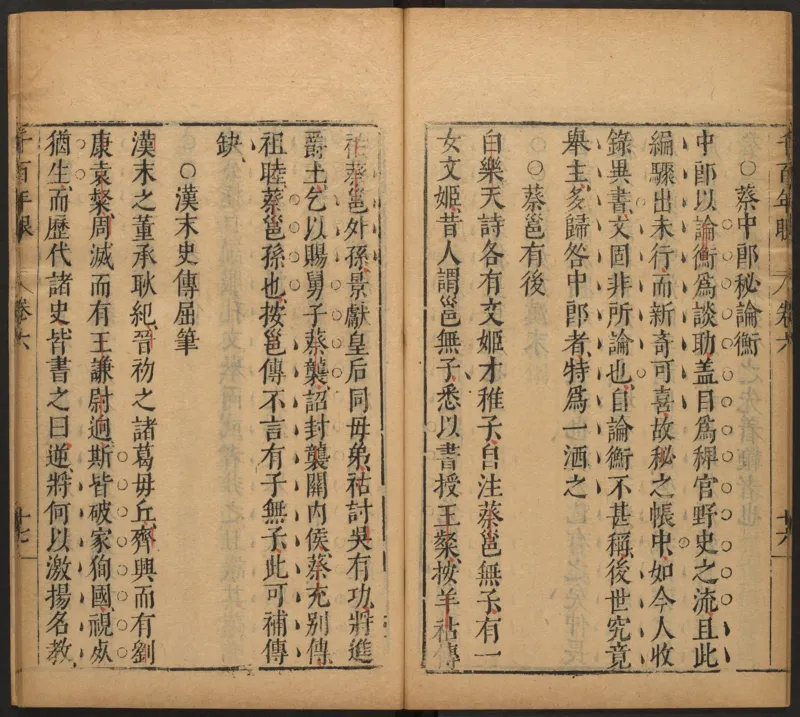 千百年眼　卷六　十六
○蔡中郎秘論衡
中郎以論衡爲談助盖目爲稗官野史之流且此
編驟出未行而新奇可喜故秘之帳中如今人收
錄異書文固非所論也自論衡不甚稱後世究竟
舉主多歸咎中郎者特爲一洒之
○蔡邕有後
白樂天詩各有文姬才稚子自注蔡邕無子有一
女文姬昔人謂邕無子悉以書授王粲按羊祜傳
祜蔡邕外孫景獻皇后同毋弟祜討吳有功將進
爵土乞以賜舅子蔡襲詔封襲關內侯蔡充别傳
祖睦蔡邕孫也按邕傳不言有子無子此可補傳
缺
○漢末史傳屈筆
漢末之董承耿紀晉初之諸葛毋丘齊興而有劉
康袁粲周滅而有王謙尉逈斯皆破家狥國視死
猶生而歷代諸史皆書之曰逆將何以激揚名教
千百年眼　卷六　十七